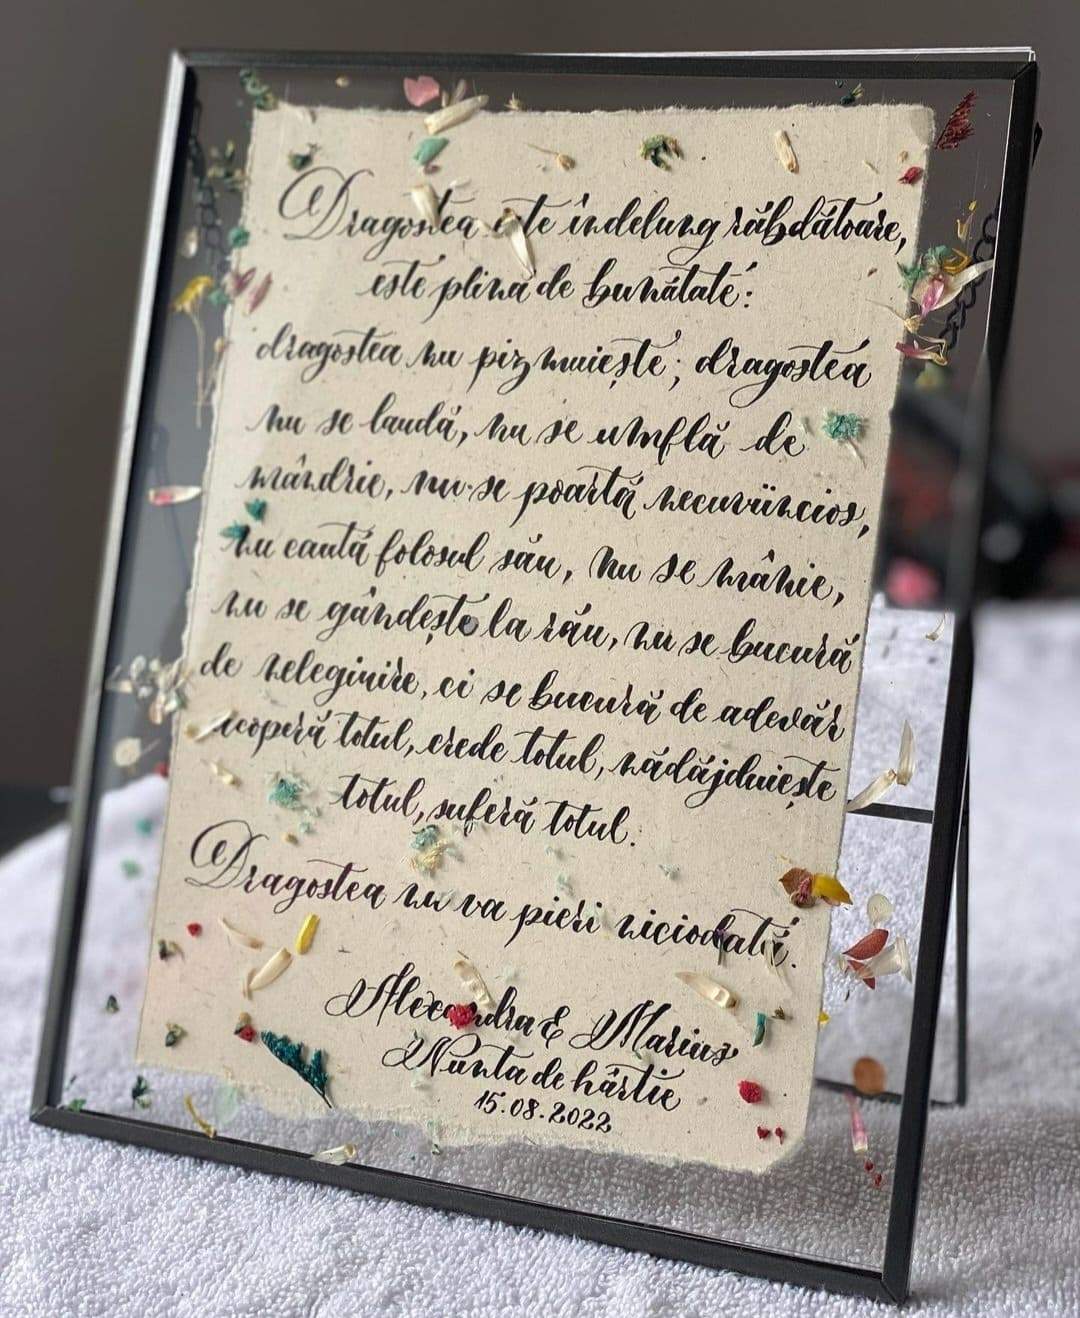 Dragostea este îndelung răbdătoare,
este plină de bunătate:
dragostea nu pizmuiește; dragostea
nu se laudă, nu se umflă de
mândrie, nu se poartă necuviincios,
nu caută folosul său, nu se mânie,
nu se gândește la rău, nu se bucură
de nelegiuire, ci se bucură de adevăr
acoperă totul, crede totul, nădăjduiește
totul, suferă totul.
Dragostea nu va pieri niciodată.
Alexandra & Marius
Nunta de hârtie
15.08.2022